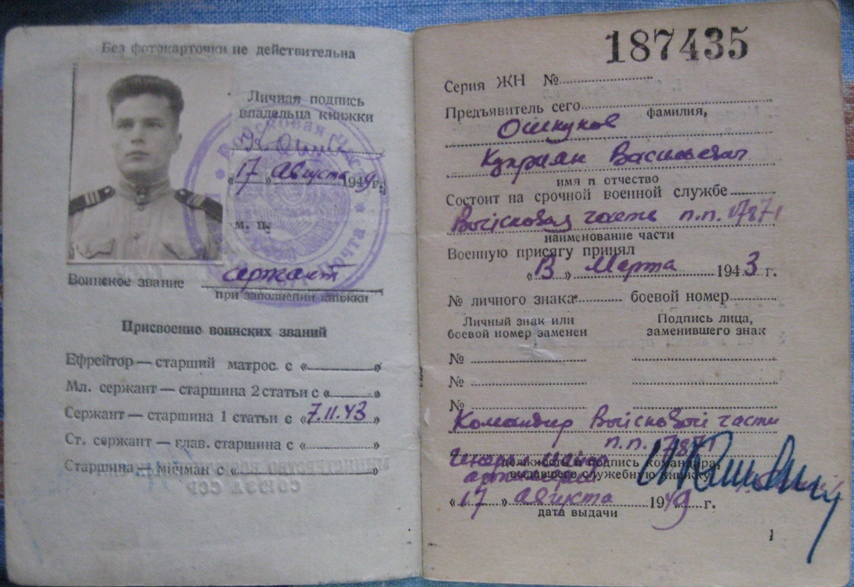 Без фотокарточки не действительна
Личная подпись
владельца книжки
„17 “ Августа 1949г.
м. п.
Воинское звание сержант
при заполнении книжки
Присвоение воинских званий
Ефрейтор — старший матрос с «
Мл. сержант — старшина 2 статьи с «
Сержант — старшина 1 статьи с «7.11.43
Ст. сержант — глав. старшина с «
Старшина — мичман с «
187435
Серия ЖН №
Предъявитель сего
фамилия,
Куприян Васильевич
имя и отчество
Состоит на срочной военной службе
Войсковая часть п.п.
наименование части
Военную присягу принял
Марта 1943 г.
№ личного знака боевой номер
Личный знак или
боевой номер заменен
Подпись лица,
заменившего знак
№
№
№
Командир Войсковой части
п.п.
Генерал-майор
артиллерии
должность и подпись командира,
выдавшего служебную книжку
«17 » Августа 1949 г.
дата выдачи
1